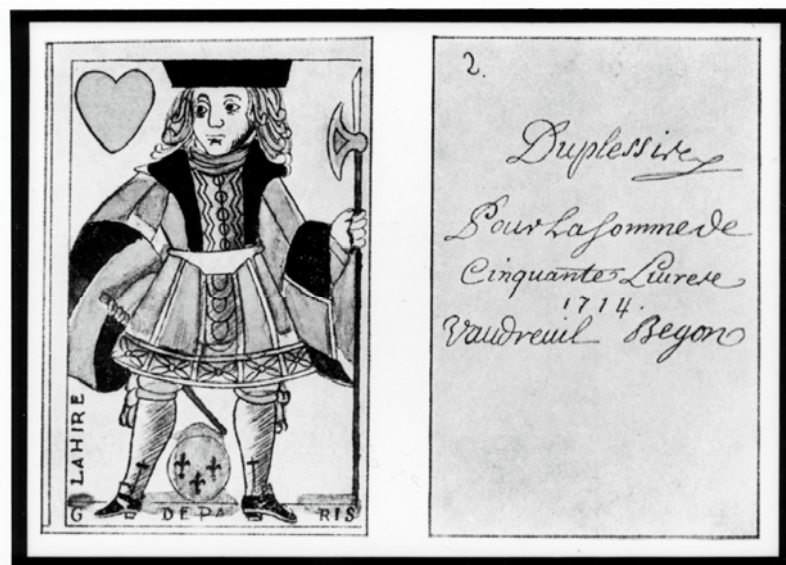 LAHIRE
G DE PA RIS
2.
Duplessis
Pour La somme de
Cinquante Livres
1714.
Vaudreuil Begon